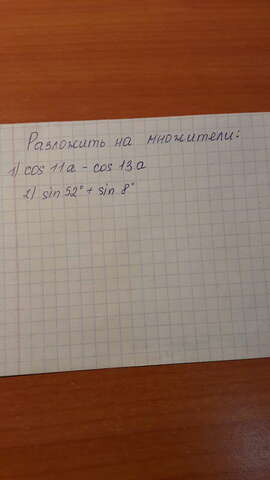 Разложить на множители:
1) cos 11a - cos 13a
2) sin 52° + sin 8°